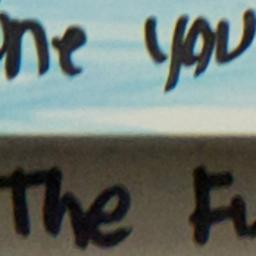 one you
The Fu